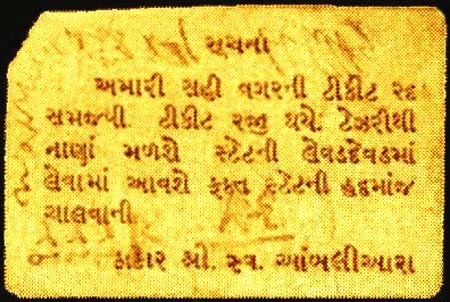 સુચના
અમારી સહી વગરની ટીકીટ રદ
સમજવી. ટીકીટ રજી થયે. ટેઝરીથી
નાણાં મળશે સ્ટેટની લેવડદેવડમાં
લેવામાં આવશે ફક્ત સ્ટેટની હદમાંજ
ચાલવાની
ઠાકોર શ્રી. સ્વ. આંબલીઆરા